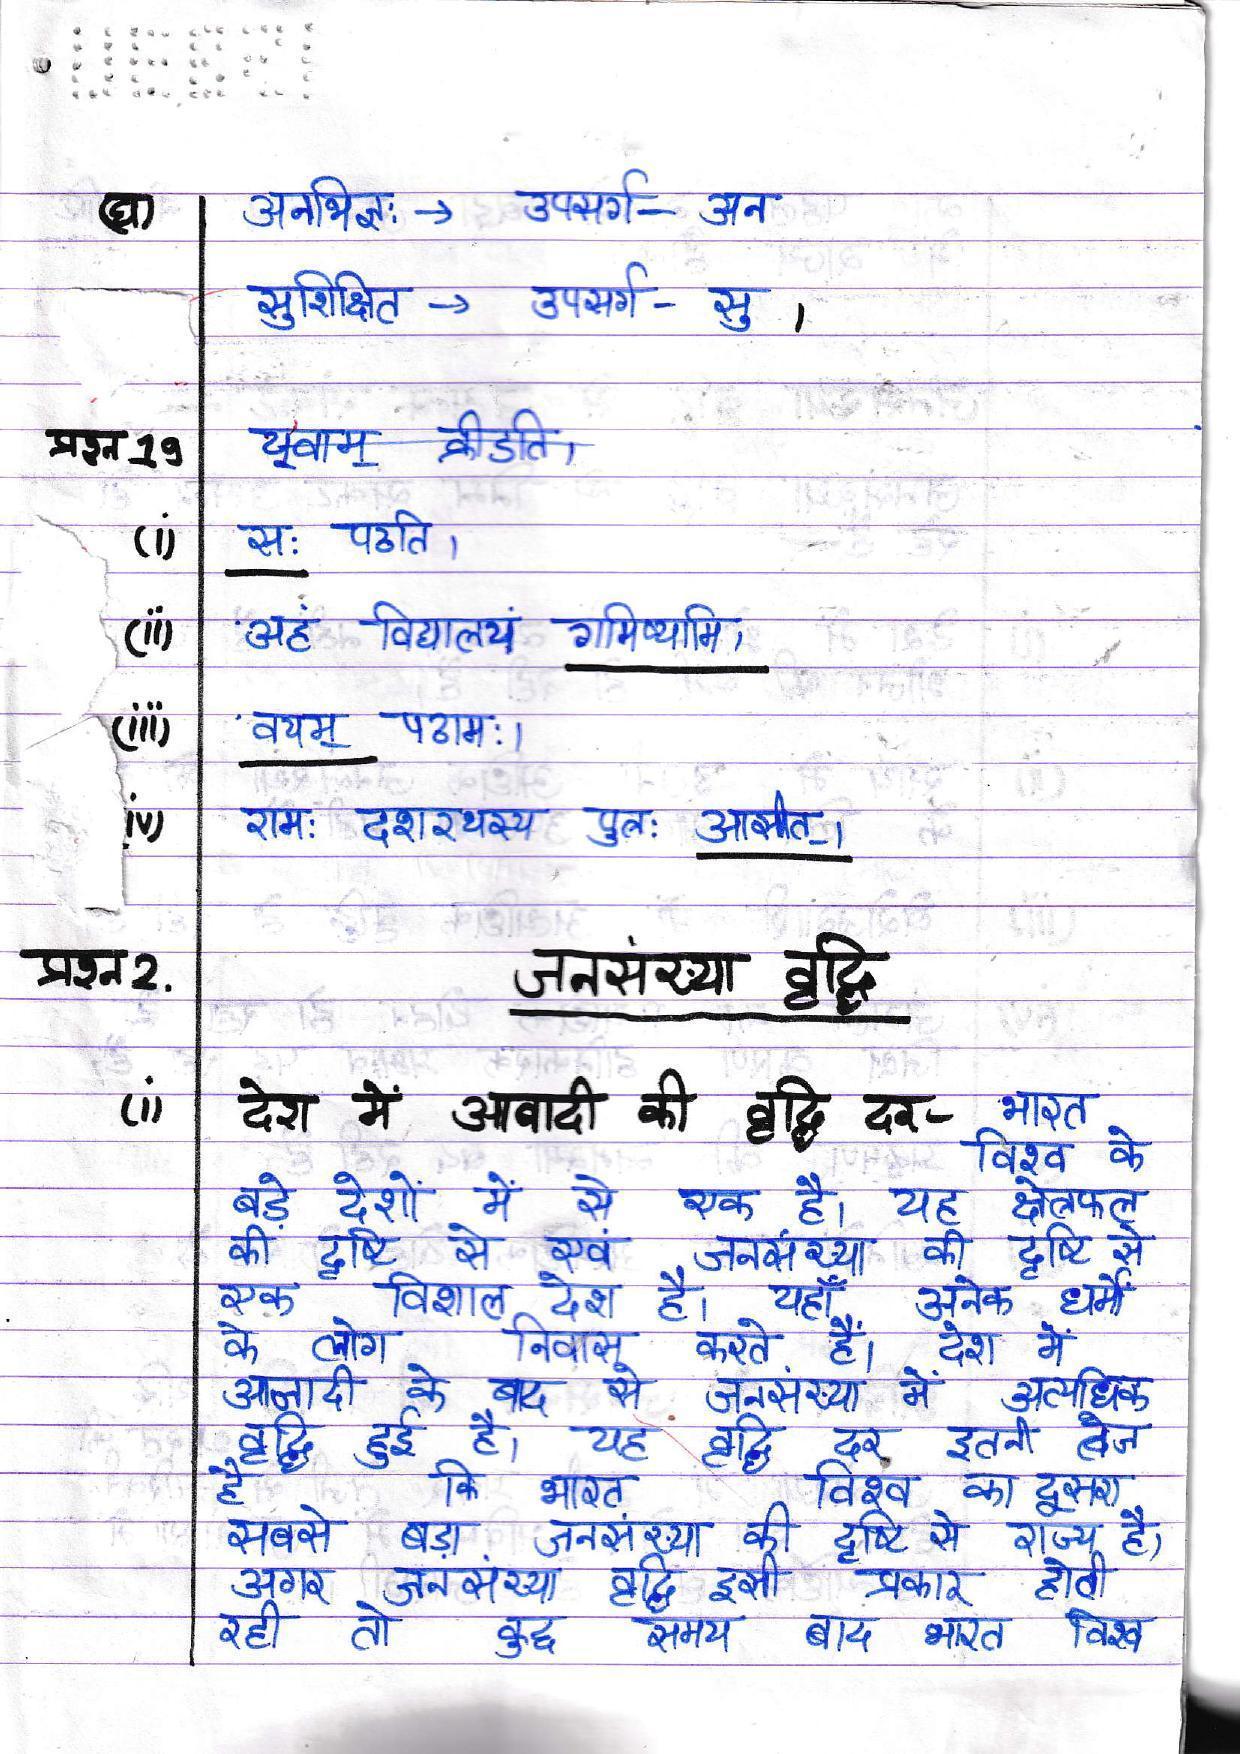 (घ) अनभिज्ञः → उपसर्ग - अन
सुशिक्षित → उपसर्ग - सु ।
प्रश्न 19 यूवाम् क्रीडति।
(i) सः पठति।
(ii) अहं विद्यालयं गमिष्यामि।
(iii) वयम् पठामः।
iv) रामः दशरथस्य पुत्रः आसीत्।
प्रश्न 2. जनसंख्या वृद्धि
(i) देश में आबादी की वृद्धि दर - भारत
विश्व के
बड़े देशों में से एक है। यह क्षेत्रफल
की दृष्टि से एवं जनसंख्या की दृष्टि से
एक विशाल देश है। यहाँ अनेक धर्मों
के लोग निवास करते हैं। देश में
आजादी के बाद से जनसंख्या में अत्यधिक
वृद्धि हुई है। यह वृद्धि दर इतनी तेज
है कि भारत विश्व का दूसरा
सबसे बड़ा जनसंख्या की दृष्टि से राज्य है।
अगर जनसंख्या वृद्धि इसी प्रकार होती
रही तो कुछ समय बाद भारत विश्व